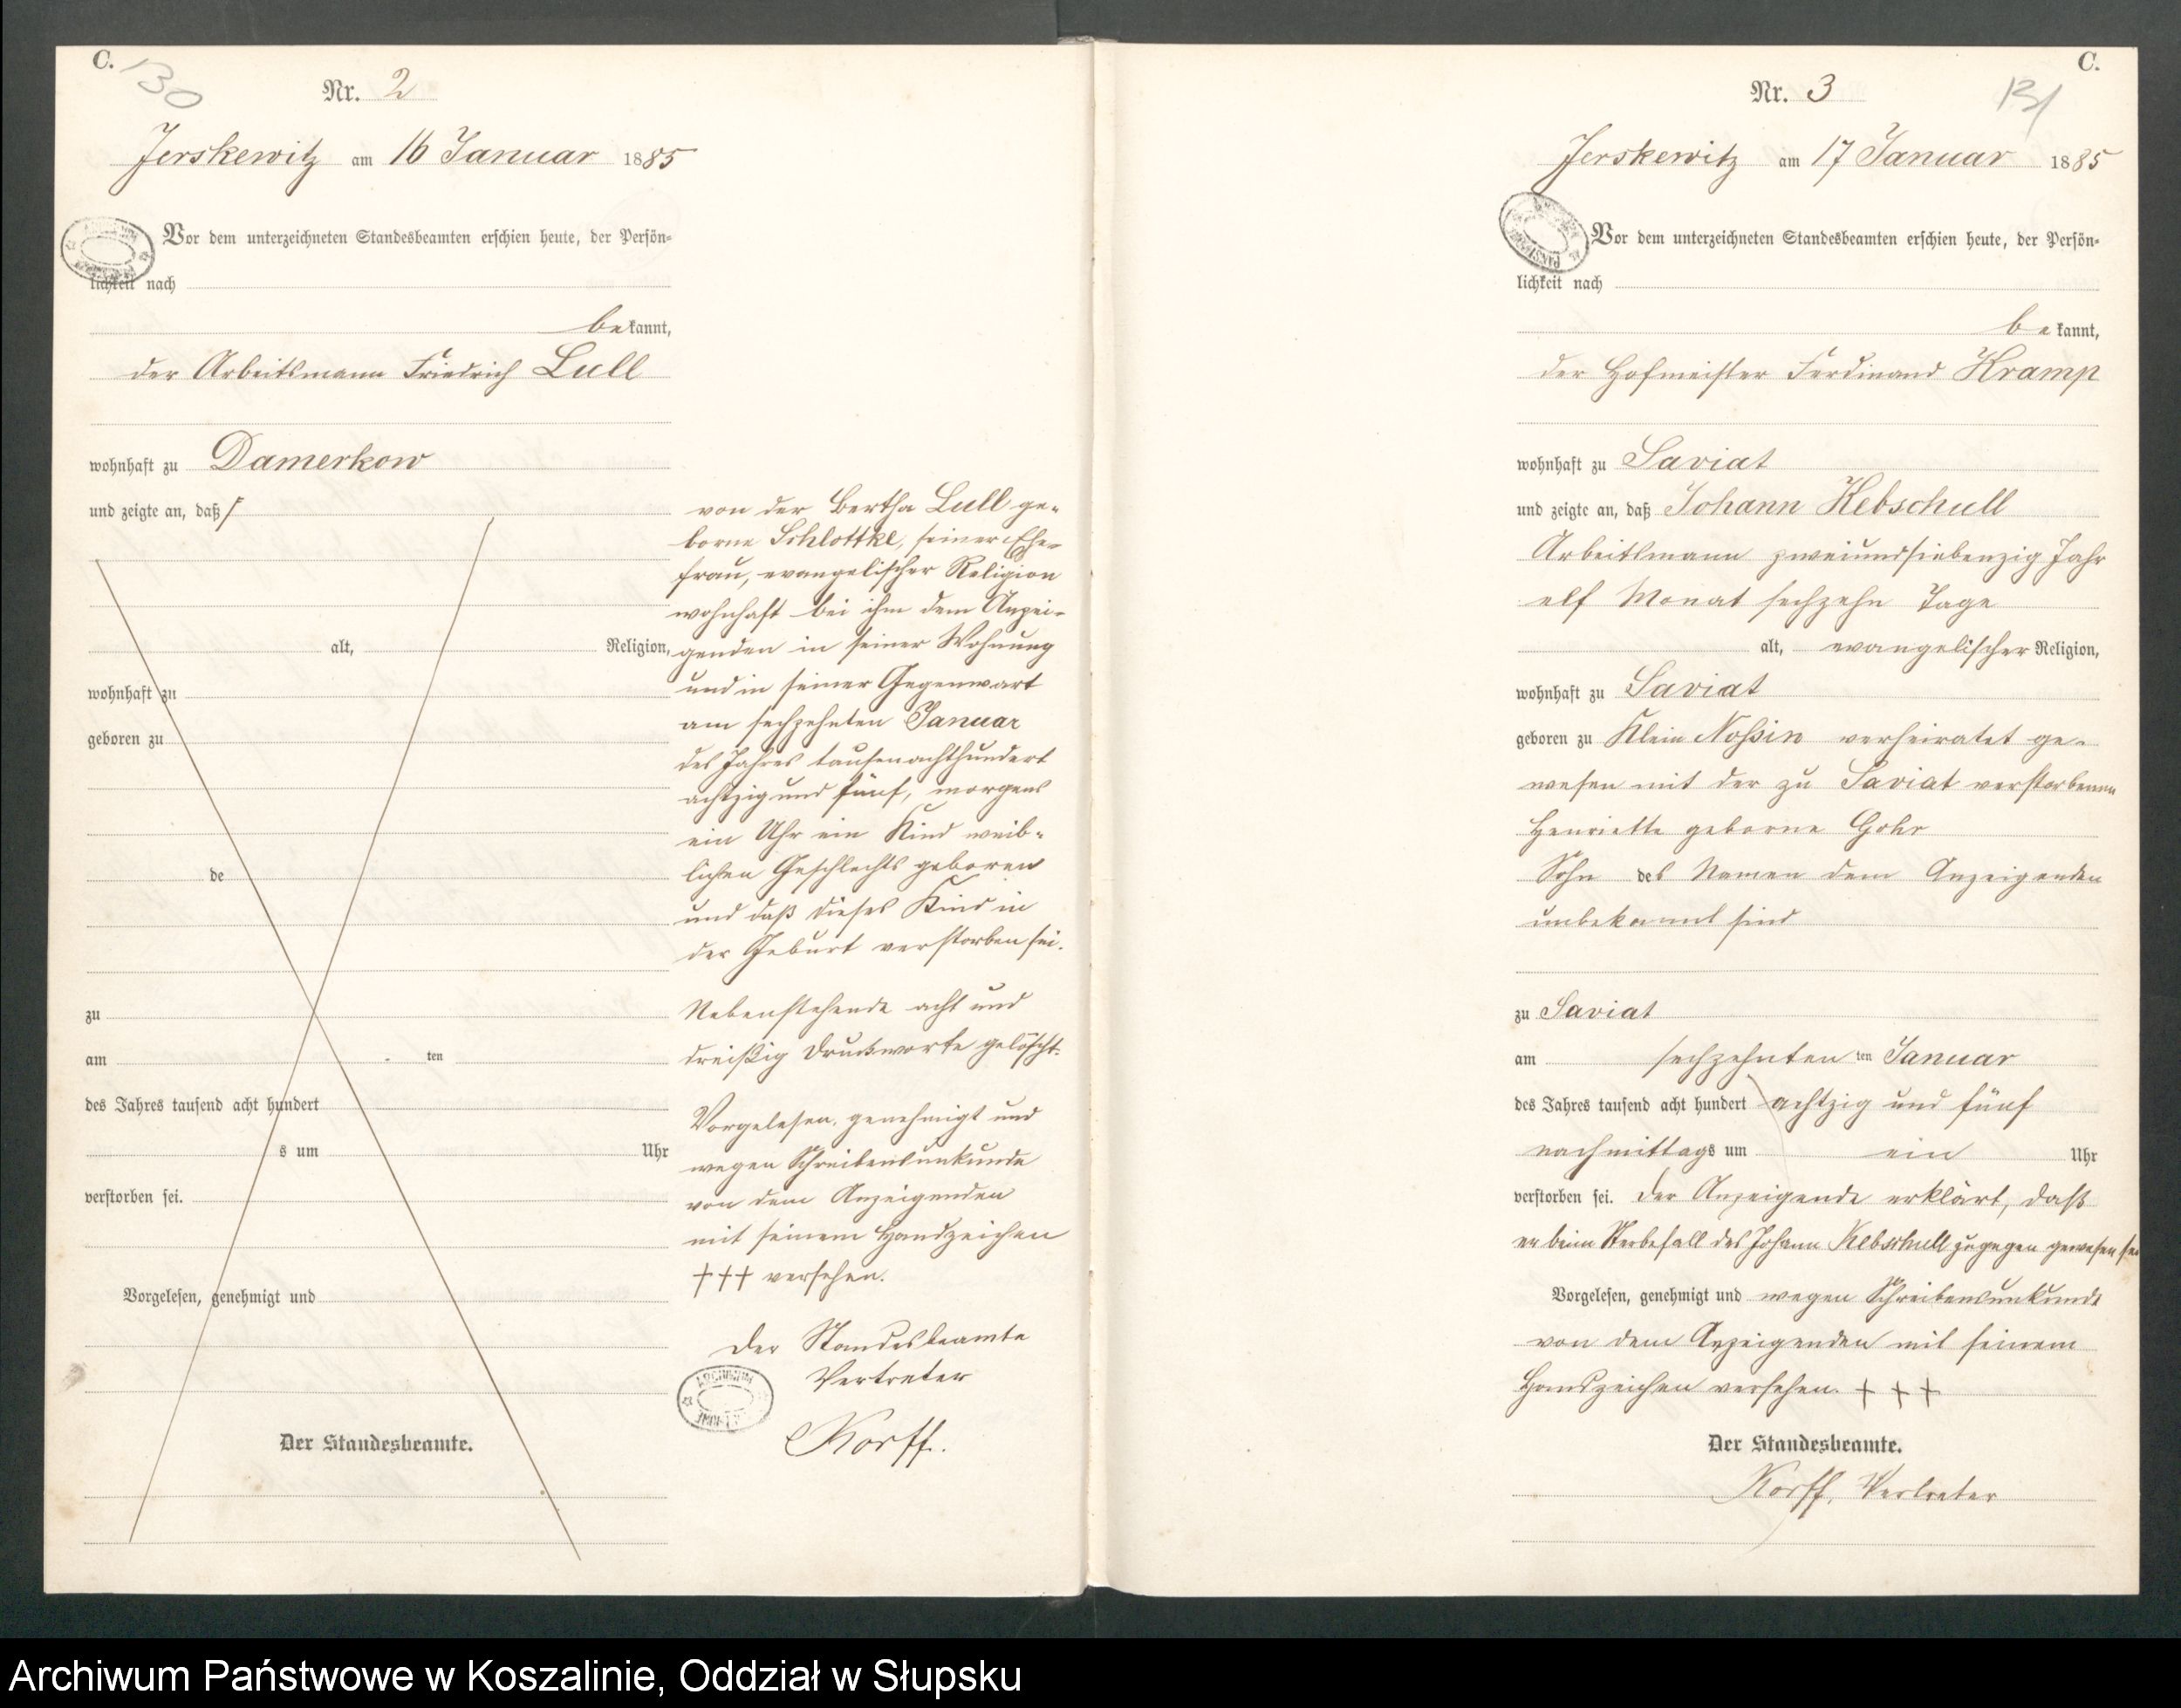 C.
130
Nr. 2
Jerskewitz am 16 Januar 1885
Vor dem unterzeichneten Standesbeamten erschien heute, der Persön-
lichkeit nach
bekannt,
der Arbeitsmann Friedrich Lull
wohnhaft zu Damerkow
und zeigte an, daß
alt, Religion,
wohnhaft zu
geboren zu
de
zu
am ten
des Jahres tausend acht hundert
s um Uhr
verstorben sei.
Vorgelesen, genehmigt und
Der Standesbeamte.
von der Bertha Lull ge-
borne Schlottke, seiner Ehe-
frau, evangelischer Religion
wohnhaft bei ihm dem Anzei-
genden in seiner Wohnung
und in seiner Gegenwart
am sechzehnten Januar
des Jahres tausenachthundert
achtzig und fünf, morgens
ein Uhr ein Kind weib-
lichen Geschlechts geboren
und daß dieses Kind in
der Geburt verstorben sei.
Nebenstehende acht und
dreißig Druckworte gelöscht.
Vorgelesen, genehmigt und
wegen Schreibensunkunde
von dem Anzeigenden
mit seinem Handzeichen
+++ versehen.
Der Standesbeamte
Vertreter
ARCHIWUM
Korff.
C.
131
Nr. 3
Jerskewitz am 17 Januar 1885
Vor dem unterzeichneten Standesbeamten erschien heute, der Persön-
lichkeit nach
bekannt,
der Hofmeister Ferdinand Kramp
wohnhaft zu Saviat
und zeigte an, daß Johann Kebschull
Arbeitsmann zweiundsiebenzig Jahr
elf Monat sechzehn Tage
alt, evangelischer Religion,
wohnhaft zu Saviat
geboren zu Klein Nossin verheiratet ge-
wesen mit der zu Saviat verstorbenen
Henriette geborne Gohr
Sohn des Namen dem Anzeigenden
unbekannt sind
zu Saviat
am sechzehnten ten Januar
des Jahres tausend acht hundert achtzig und fünf
nachmittags um ein Uhr
verstorben sei. Der Anzeigende erklärt, daß
er beim Sterbefall des Johann Kebschull zugegen gewesen sei
Vorgelesen, genehmigt und wegen Schreibensunkunde
von dem Anzeigenden mit seinem
Handzeichen versehen. + + +
Der Standesbeamte.
Korff, Vertreter
Archiwum Państwowe w Koszalinie, Oddział w Słupsku